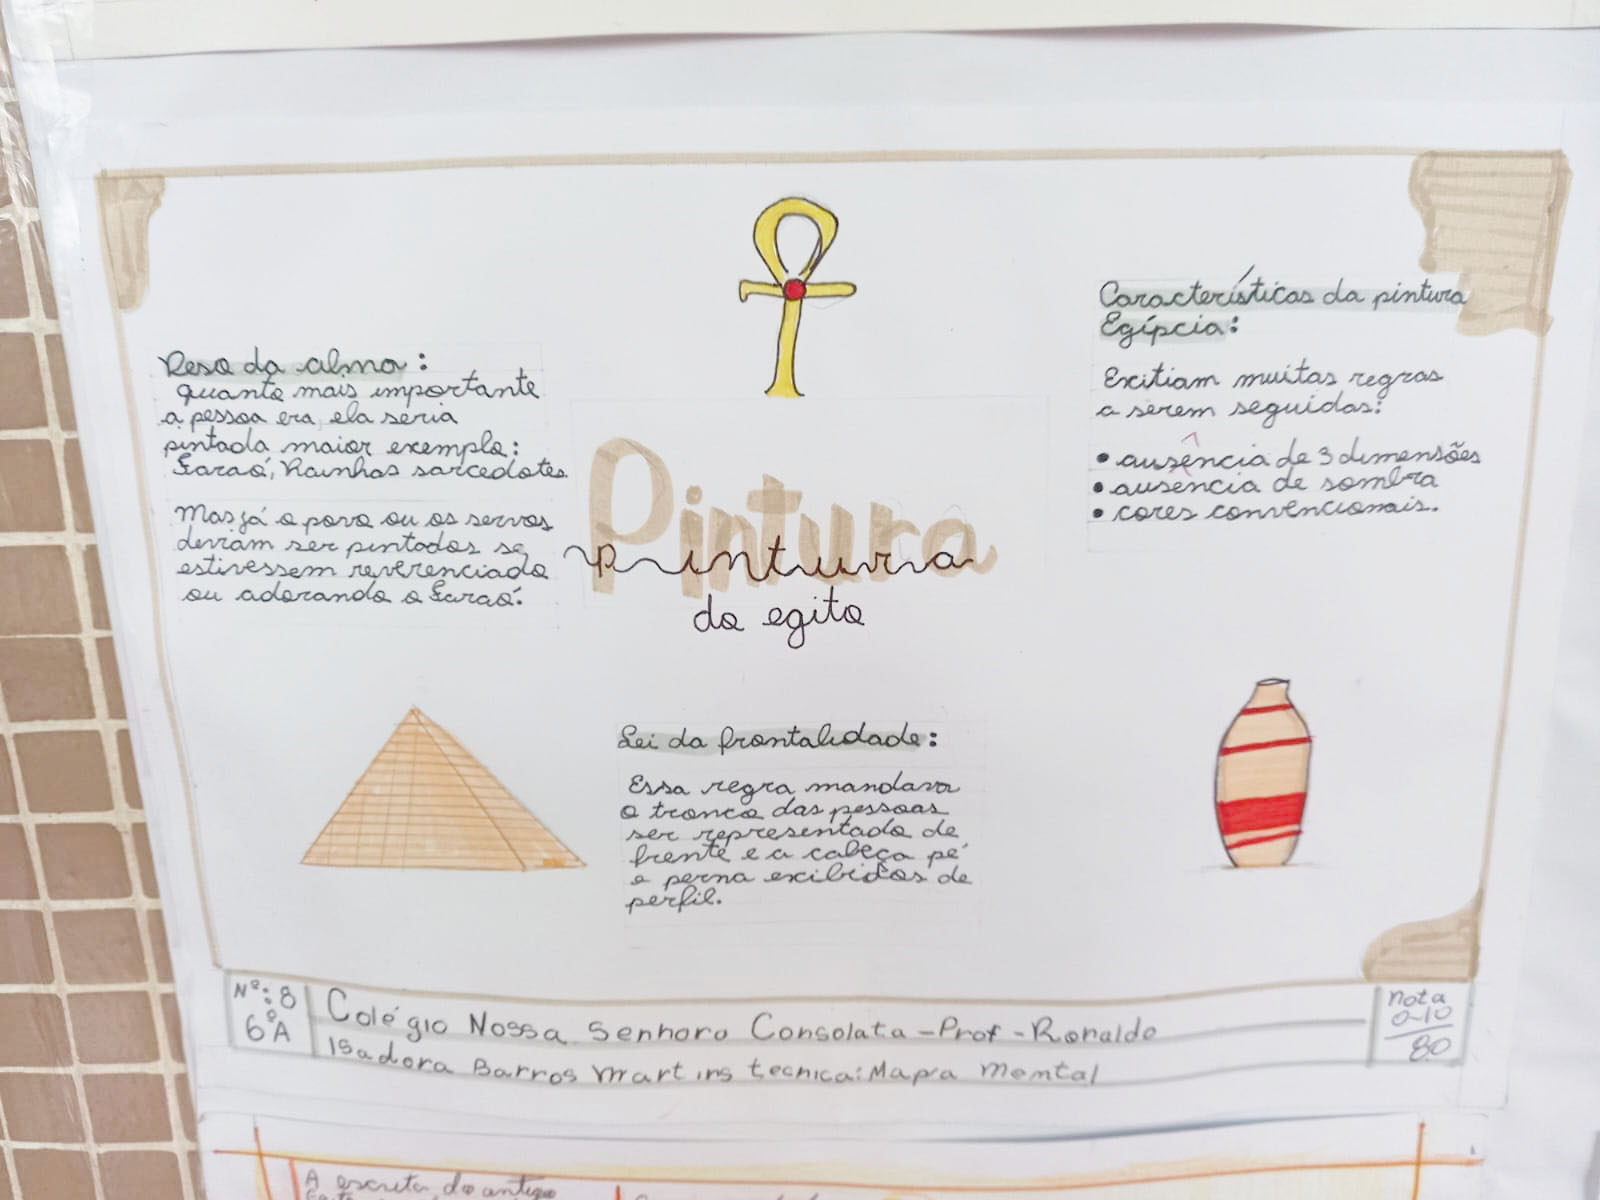 Peso da alma:
quanto mais importante
a pessoa era, ela seria
pintada maior exemplo:
Faraó, Rainhas sarcedotes.
Mas já o povo ou os servos
deviam ser pintados se
estivessem reverenciado
ou adorando o Faraó.
Pintura
Pintura
do egito
Características da pintura
Egípcia:
Exitiam muitas regras
a serem seguidas:
• ausência de 3 dimensões
• ausência de sombra
• cores convencionais.
Lei da frontalidade:
Essa regra mandava
o tronco das pessoas
ser representado de
frente e a cabeça pé
e perna exibidos de
perfil.
Nº: 8
6ºA
Colégio Nossa Senhora Consolata - Prof - Ronaldo
Isadora Barros Martins tecnica: Mapa Mental
nota
0-10
80
A escrita do antigo